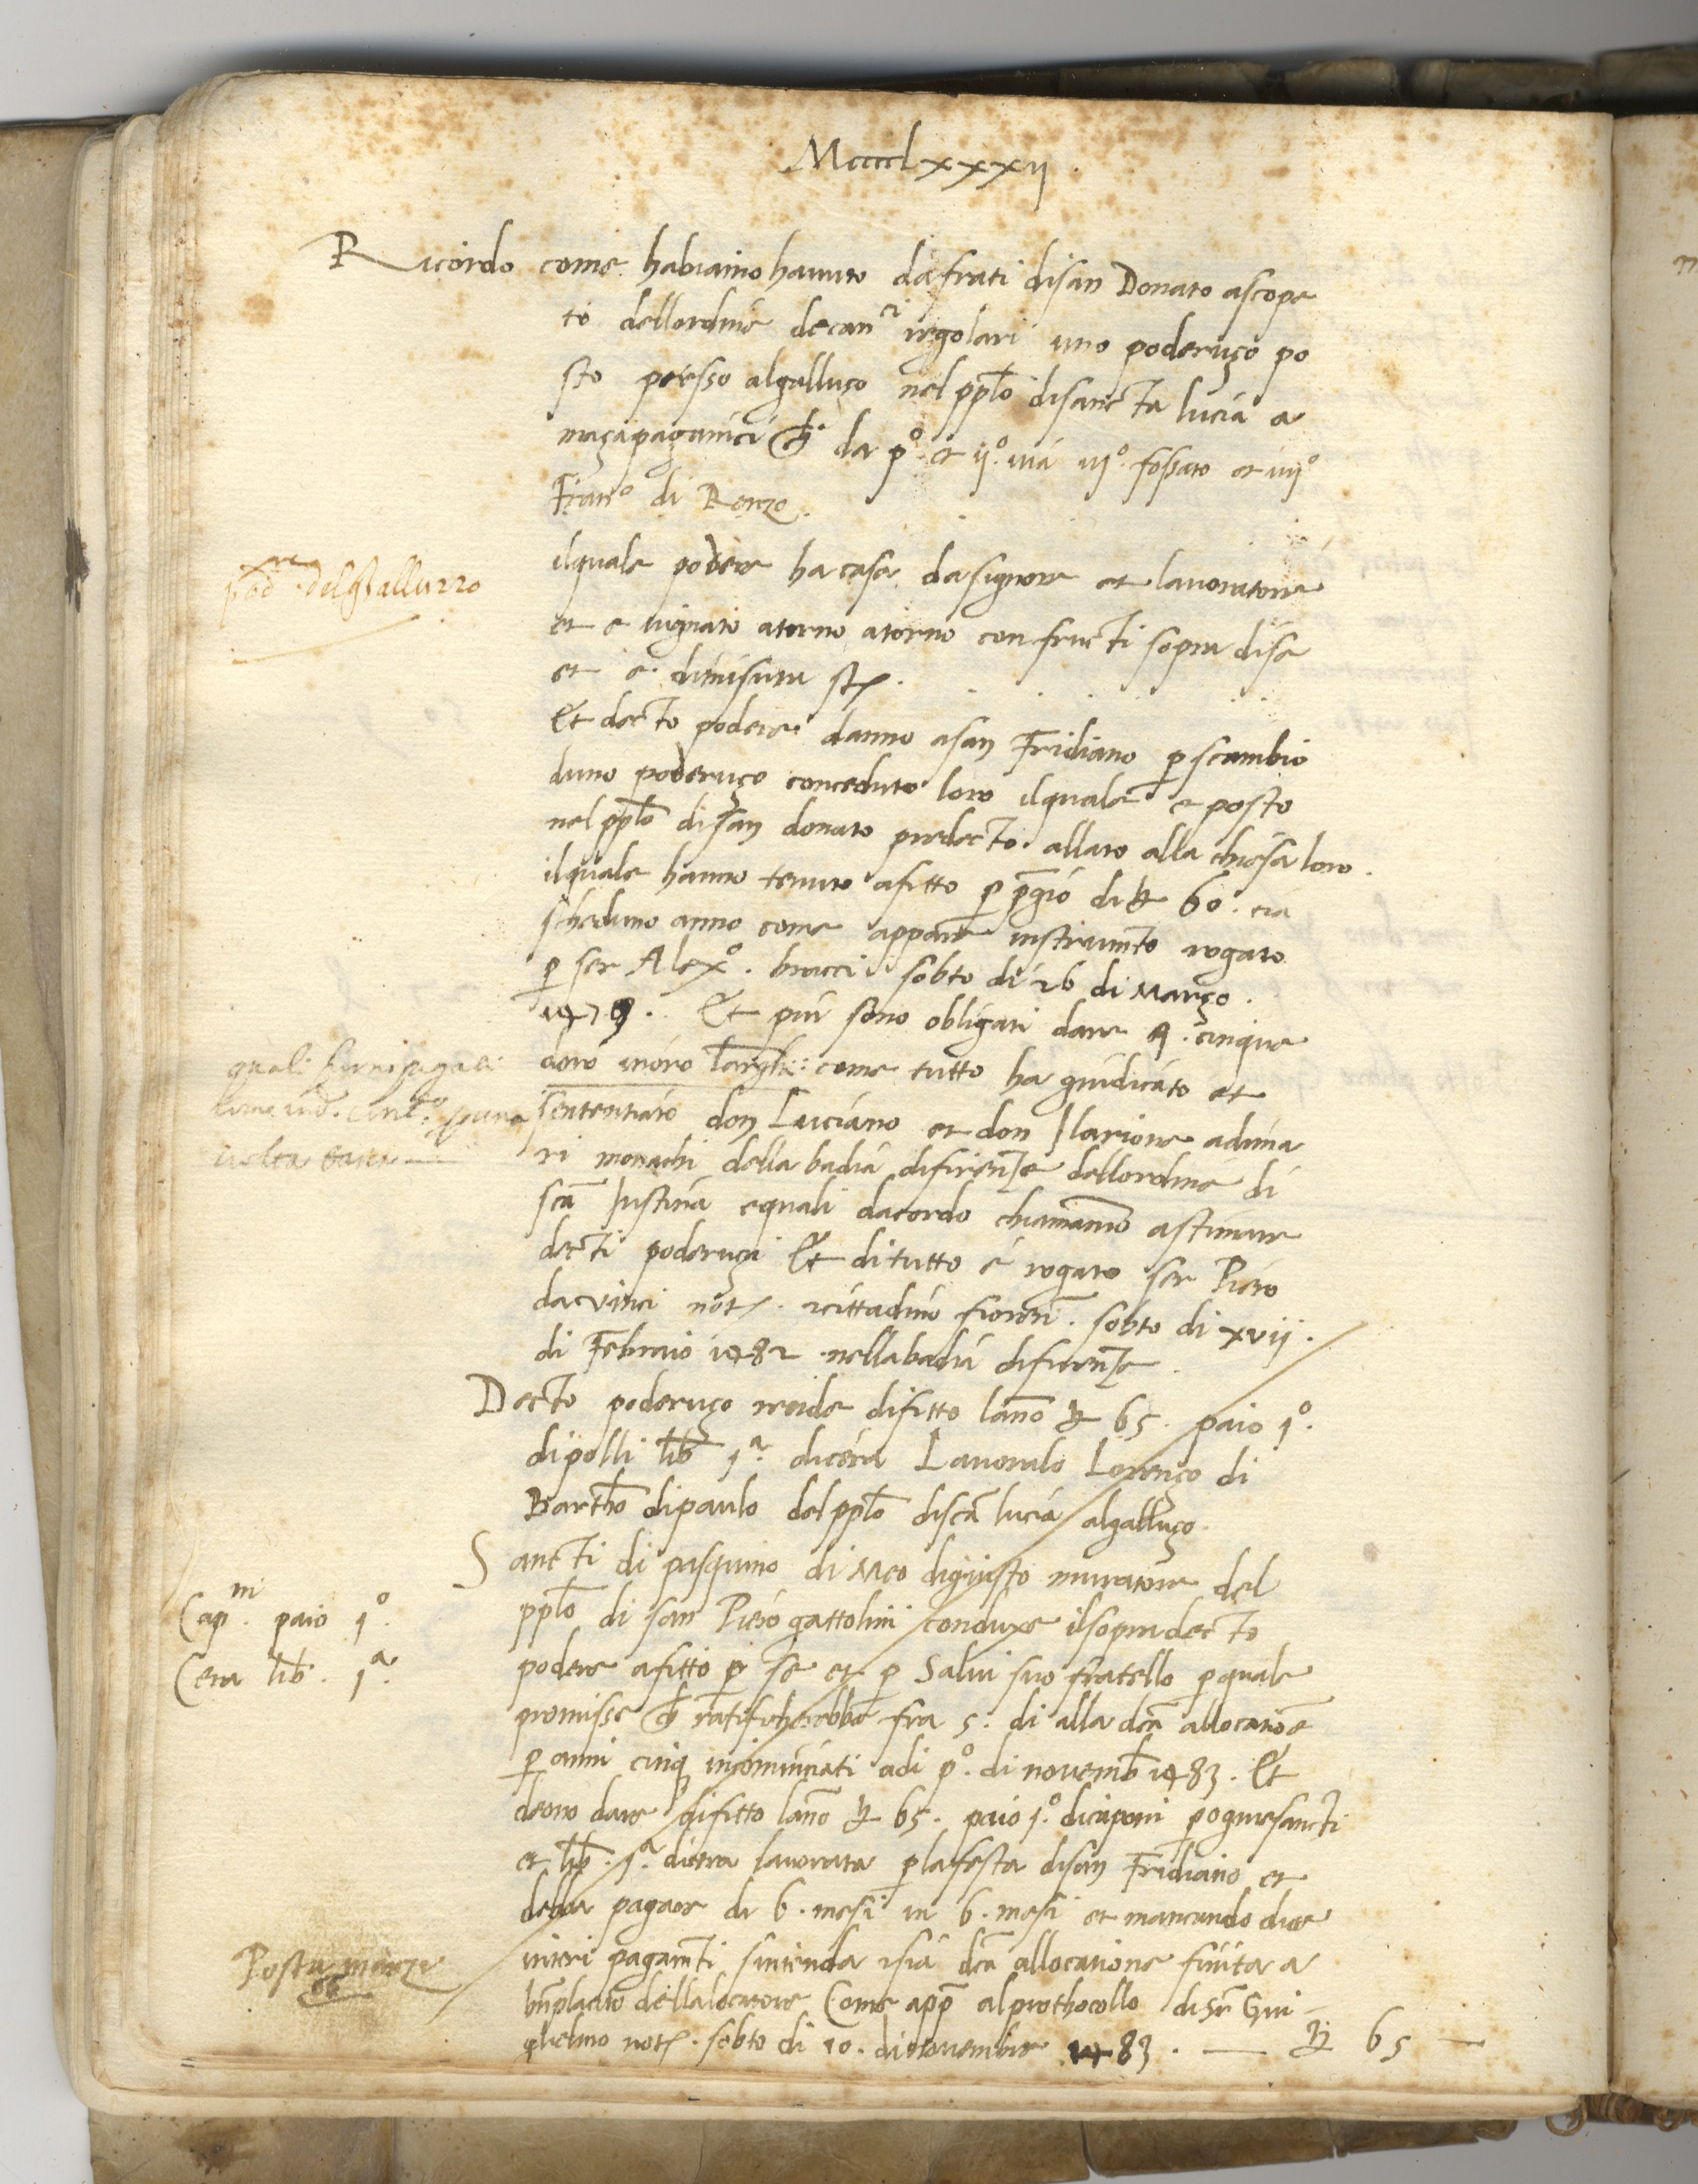 MccccLxxxii
Ricordo come habiamo havuto da frati disan Donato ascope
to dellordine decan.ci regolari uno poderuço po
sto presso algalluço nelpplo disancta lucia a
maçapaganici ch da p.º et ii.º via iii.º fossato et iiii.º
Fran.º di Renzo.
pod.re del Galluzzo
ilquale podere ha casa dasignore et lavoratore
et e vignato atorno atorno con fructi sopra dise
et e dimisura st.
Et decto podere danno asan Fridiano p scambio
duno poderuço conceduto loro ilquale e posto
nelpplo disan donato predecto allato alla chiesa loro.
ilquale hanno tenuto afitto p pregio di ₤ 60. cia
scheduno anno come appare instrumto rogato
p ser Alexº. bracci sobto di 26 di Março.
1479. Et piu sono obligati dare f. cinque
doro inoro larghi: come tutto ha giudicato et
quali furni pagati
volta
Sententiato don Luciano et don Ilarione adima
ri monachi della badia difirençe dellordine di
sca Iustina equali dacordo chiamamo astimare
decti poderuçi Et ditutto e rogato ser Piero
davinci not. cittadino fioren. sobto di xvii.
di Febraio 1482 nellabadia difirençe.
Decto poderuço rende difitto lano ₤ 65. paio 1º.
dipolli lib 1ª. dicera Lavoralo Lorenço di
Bartho dipaulo delpplo disca lucia algalluço.
Sancti di pasquino di Meo digiusto muratore del
pplo di san Piero gattolini conduxe ilsopradecto
Cap.ni paio 1º.
Cera lib. 1ª.
podere afitto p se et p Salvi suo fratello pquale
promisse ch ratificherebbe fra 5. di alla dca allocatioe
p anni cinq incominciati adi pº. di novemb 1483. Et
deono dare difitto lano ₤ 65. paio 1º. dicaponi p ognisancti
et lib. 1ª. dicera lavorata p lafesta disan Fridiano et
debba pagare di 6. mesi in 6. mesi et mancando due
interi pagamti sintenda esia dca allocatione finita a
Posta
bnplacito dellalocatore Come app alprothocollo diSer Gui
glielmo not. sobto di 10. dinovembre 1483. — ₤ 65 —